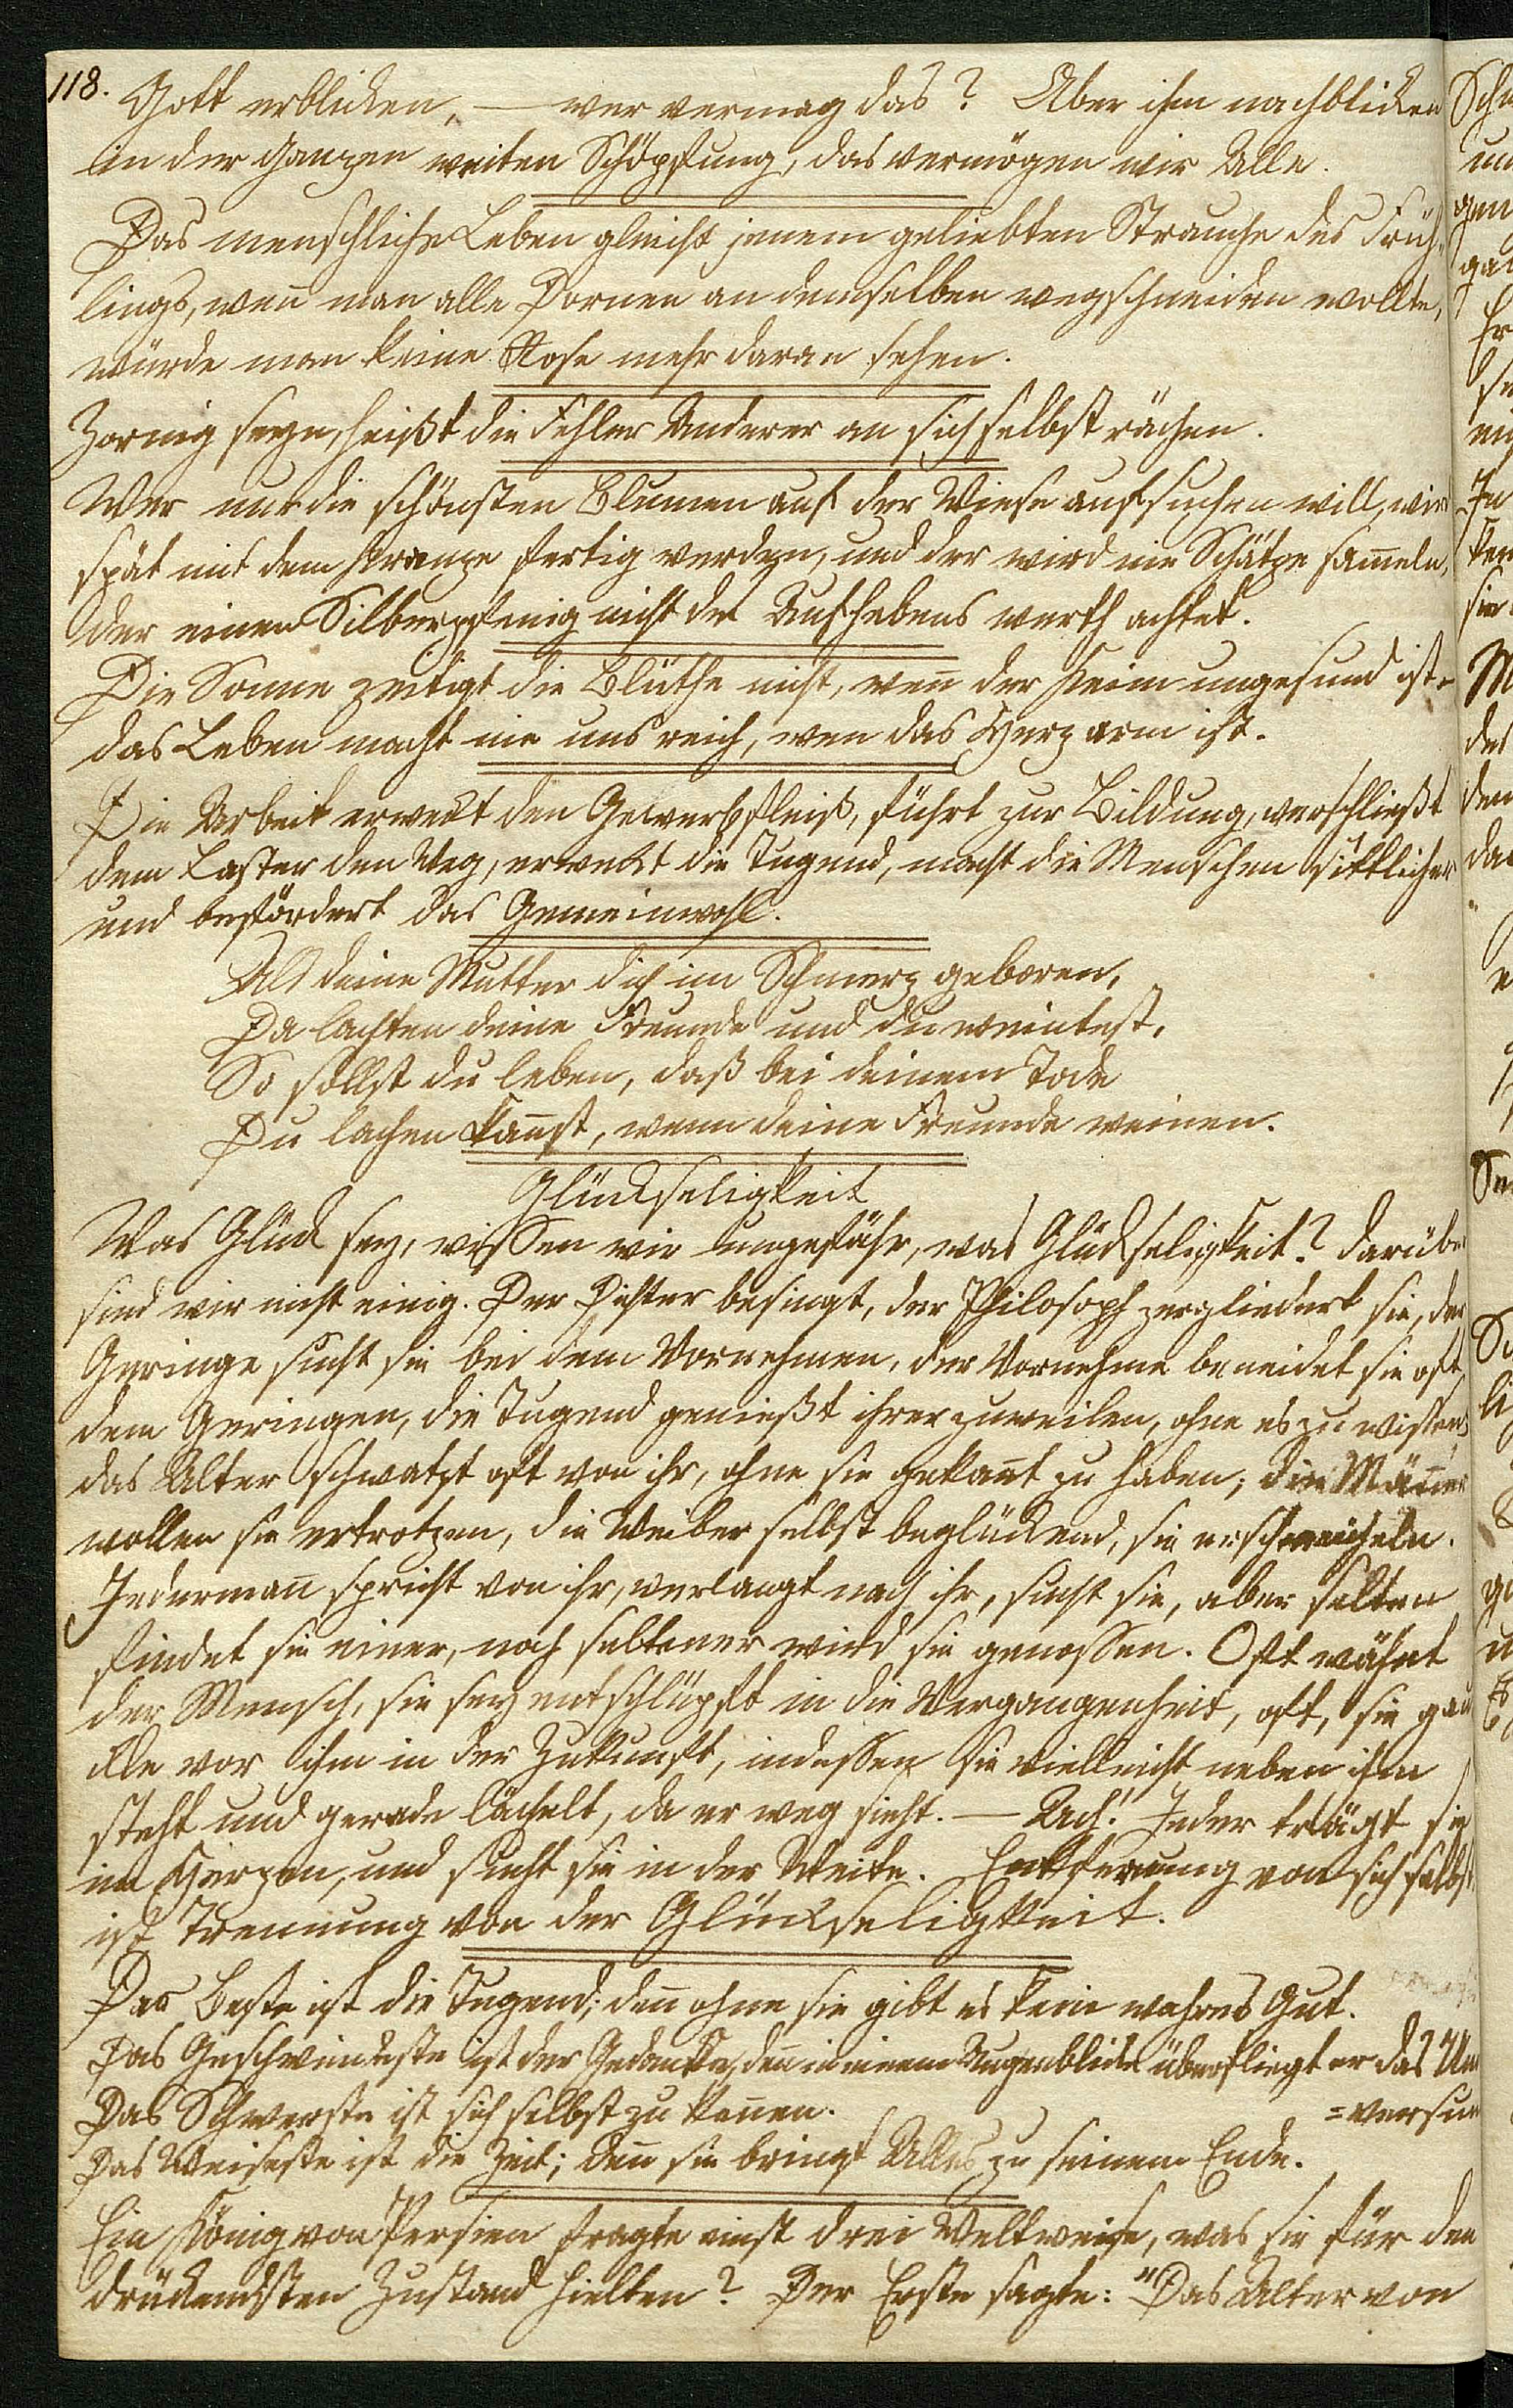 118. Gott erblicken, — wer vermag das? Aber ihm nachblicken
in der ganzen weiten Schöpfung, das vermögen wir Alle.
Das menschliche Leben gleicht jenem geliebten Strauche des Früh-
lings, weñ man alle Dornen an demselben wegschneiden wollte,
würde man keine Rose mehr daran sehen.
Zornig seyn, heißt die Fehler Anderer an sich selbst rächen.
Wer nur die schönsten Blumen auf der Wiese aufsuchen will, wird
spät mit dem Kranze fertig werden, und der wird nie Schätze sam̃eln,
der einen Silberpfenig nicht des Aufhebens werth achtet.
Die Sonne zeitigt die Blüthe nicht, weñ der Keim ungesund ist –
das Leben macht nie uns reich, wen das Herz arm ist.
Die Arbeit erweckt den Gewerbfleiß, führt zur Bildung, verschließt
dem Laster den Weg, erweckt die Tugend, macht die Menschen sittlicher
und befördert das Gemeinwohl.
Als deine Mutter dich im Schmerz geboren,
Da lachten deine Freunde und du weintest,
So sollst du leben, daß bei deinem Tode
Du lachen kañst, wenn deine Freunde weinen.
Glückseligkeit
Was Glück sey, wissen wir ungefähr, was Glückseligkeit? darüber
sind wir nicht einig. Der Dichter besingt, der Philosoph zergliedert sie, der
Geringe sucht sie bei dem Vornehmen, der Vornehme beneidet sie oft
dem Geringen, die Tugend genießt ihrer zuweilen, ohne es zu wissen,
das Alter schwatzt oft von ihr, ohne sie gekañt zu haben; die Mäñer
wollen sie ertrotzen, die Weiber selbst beglückend, sie erschmeicheln.
Jedermañ spricht von ihr, verlangt nach ihr, sucht sie, aber selten
findet sie einer, noch seltener wird sie genossen. Oft wähnt
der Mensch, sie sey entschlüpft in die Vergangenheit, oft, sie gau
kle vor ihm in der Zukunft, indessen sie vielleicht neben ihm
steht und gerade lächelt, da er weg sieht. — Ach! Jeder trägt sie
im Herzen, und sucht sie in der Weite. Entfernung von sich selbst,
ist Trennung von der Glückseligkeit.
Das Beste ist die Tugend; deñ ohne sie gibt es kein wahres Gut.
Das Geschwindeste ist der Gedanke, deñ in einem Augenblicke überfliegt er das Uni
Das Schwerste ist sich selbst zu keñen. =versum
Das Weiseste ist die Zeit; deñ sie bringt Alles zu seinem Ende.
Ein König von Persien fragte einst drei Weltweise, was sie für den
drückendsten Zustand hielten? Der Erste sagte: "Das Alter von